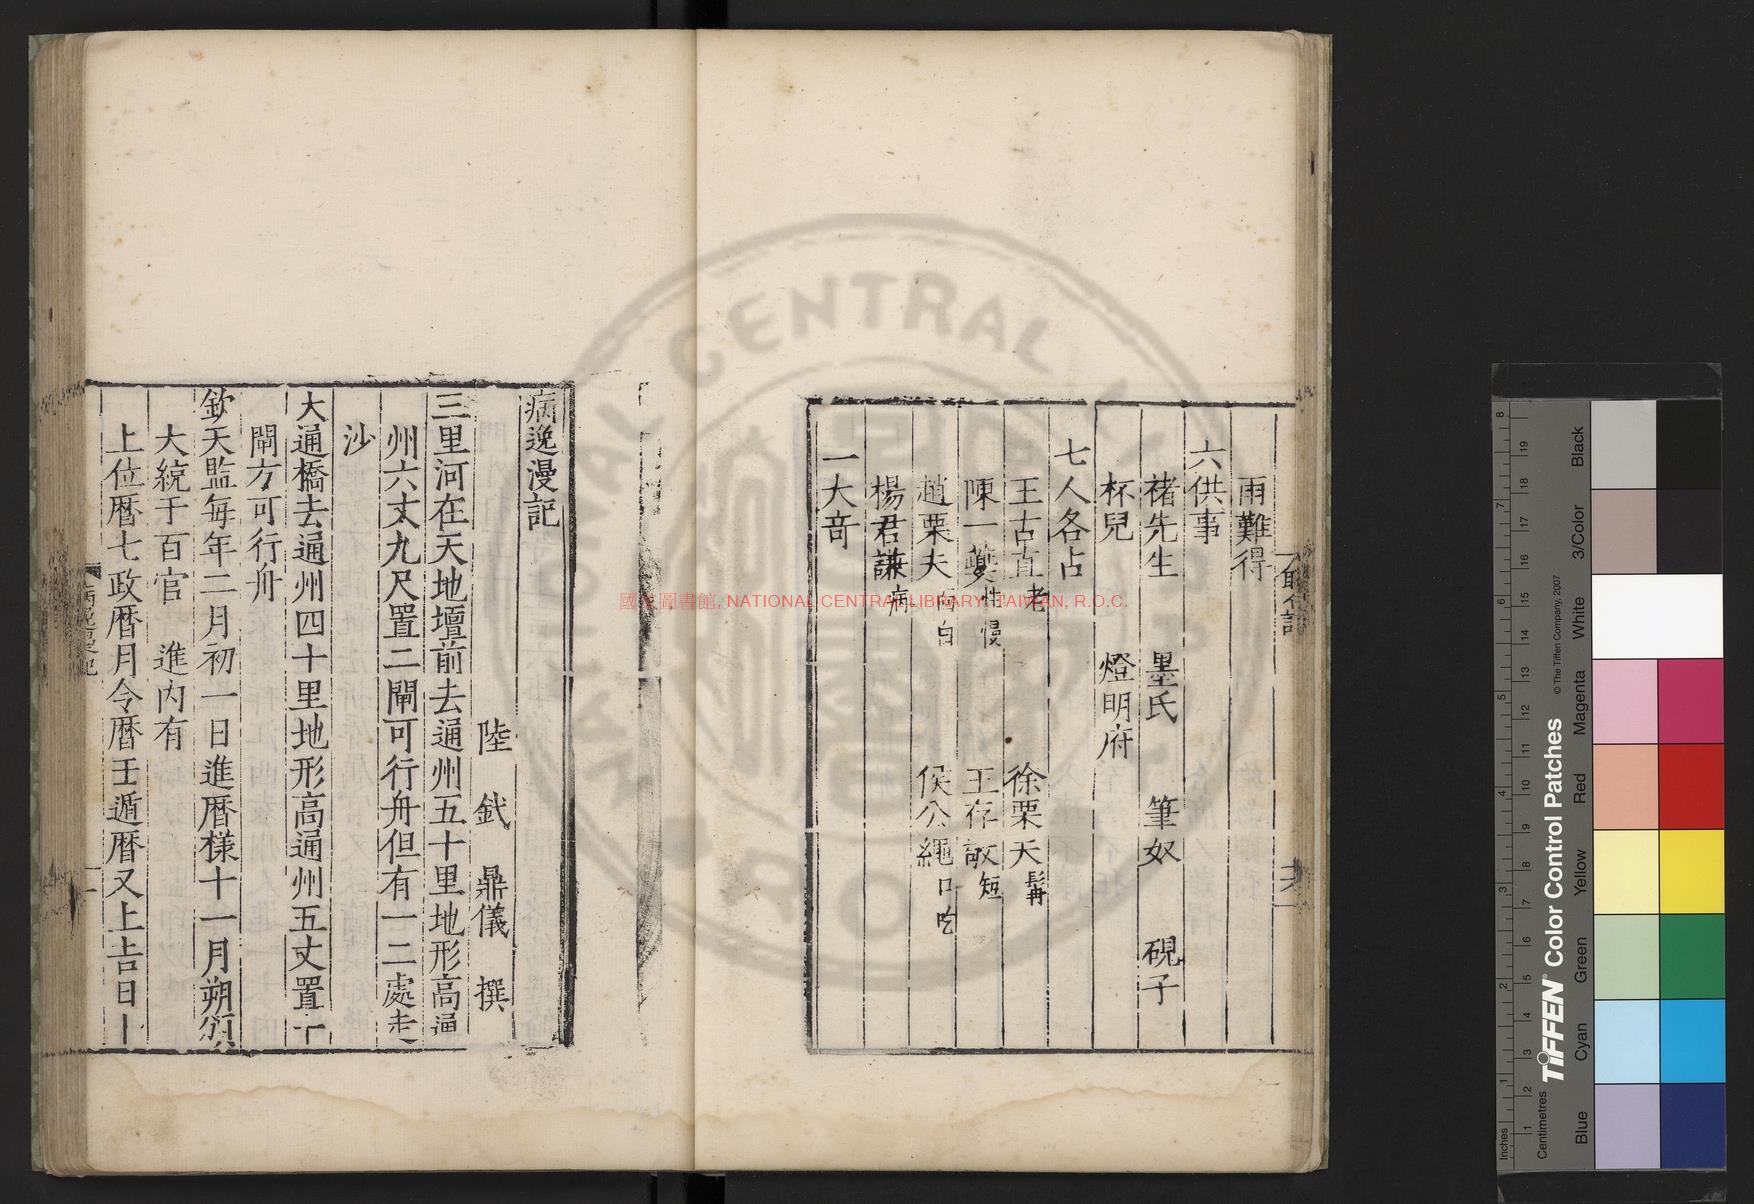 雨難得
六供事
褚先生　墨氏　筆奴　硯子
杯兒　燈明府
七人各占
王古直老　徐栗夫髯
陳一夔性慢　王存敬短
趙栗夫 白　侯公繩口吃
楊君謙病
一大奇
病逸漫記
陸　釴　鼎儀　撰
三里河在天地壇前去通州五十里地形高通
州六丈九尺置二閘可行舟但有一二處走
沙
大通橋去通州四十里地形高通州五丈置十
閘方可行舟
欽天監每年二月初一日進曆様十一月朔頒
大統于百官　進內有
上位曆七政曆月令曆壬遁曆又上吉日十
國家圖書館, NATIONAL CENTRAL LIBRARY, TAIWAN, R.O.C.
NATIONAL CENTRAL LIBRARY
R.O.C.
Inches
Centimetres
TIFFEN® Color Control Patches
© The Tiffen Company, 2007
Blue
Cyan
Green
Yellow
Red
Magenta
White
3/Color
Black